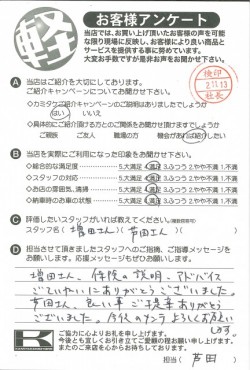 軽
お客様アンケート
当店では、お買い上げ頂いたお客様の声を可能
な限り現場に反映し、お客様により良い商品と
サービスを提供する事に努めています。
大変お手数ですが是非お声をお聞かせ下さい。
検印
2.11.13
社長
A 当店はご紹介を大切にしております。
ご紹介キャンペーンについてお聞かせ下さい。
◇カミタケご紹介キャンペーンのご説明はありましたでしょうか
はい いいえ
◇具体的にご紹介頂ける方とのご関係をお聞かせ頂けますでしょうか
ご親族 ご友人 職場の方 機会があれば紹介したい
B 当店を実際にご利用になった印象をお聞かせ下さい。
◇総合的な満足度 5.大満足 4.満足 3.ふつう 2.やや不満 1.不満
◇スタッフの対応 5.大満足 4.満足 3.ふつう 2.やや不満 1.不満
◇お店の雰囲気、清掃 5.大満足 4.満足 3.ふつう 2.やや不満 1.不満
◇納車時のお車の状態 5.大満足 4.満足 3.ふつう 2.やや不満 1.不満
C 評価したいスタッフがいれば教えてください。(複数回答可)
スタッフ名( 増田さん )( 芦田さん )
D 担当させて頂きましたスタッフへのご指摘、ご指導メッセージを
お願いします。応援メッセージもぜひお願いします。
増田さん、保険の説明・アドバイス
ごていねいにありがとうございました。
芦田さん、良い車ご手配ありがとう
ございました。今後のメンテよろしくお願い
します。
K
ご協力に心よりお礼を申し上げます。
今後とも宜しくお引き立てご愛顧の程お願い申し上げます。
またのご来店を心からお待ちしております。
担当( 芦田 )